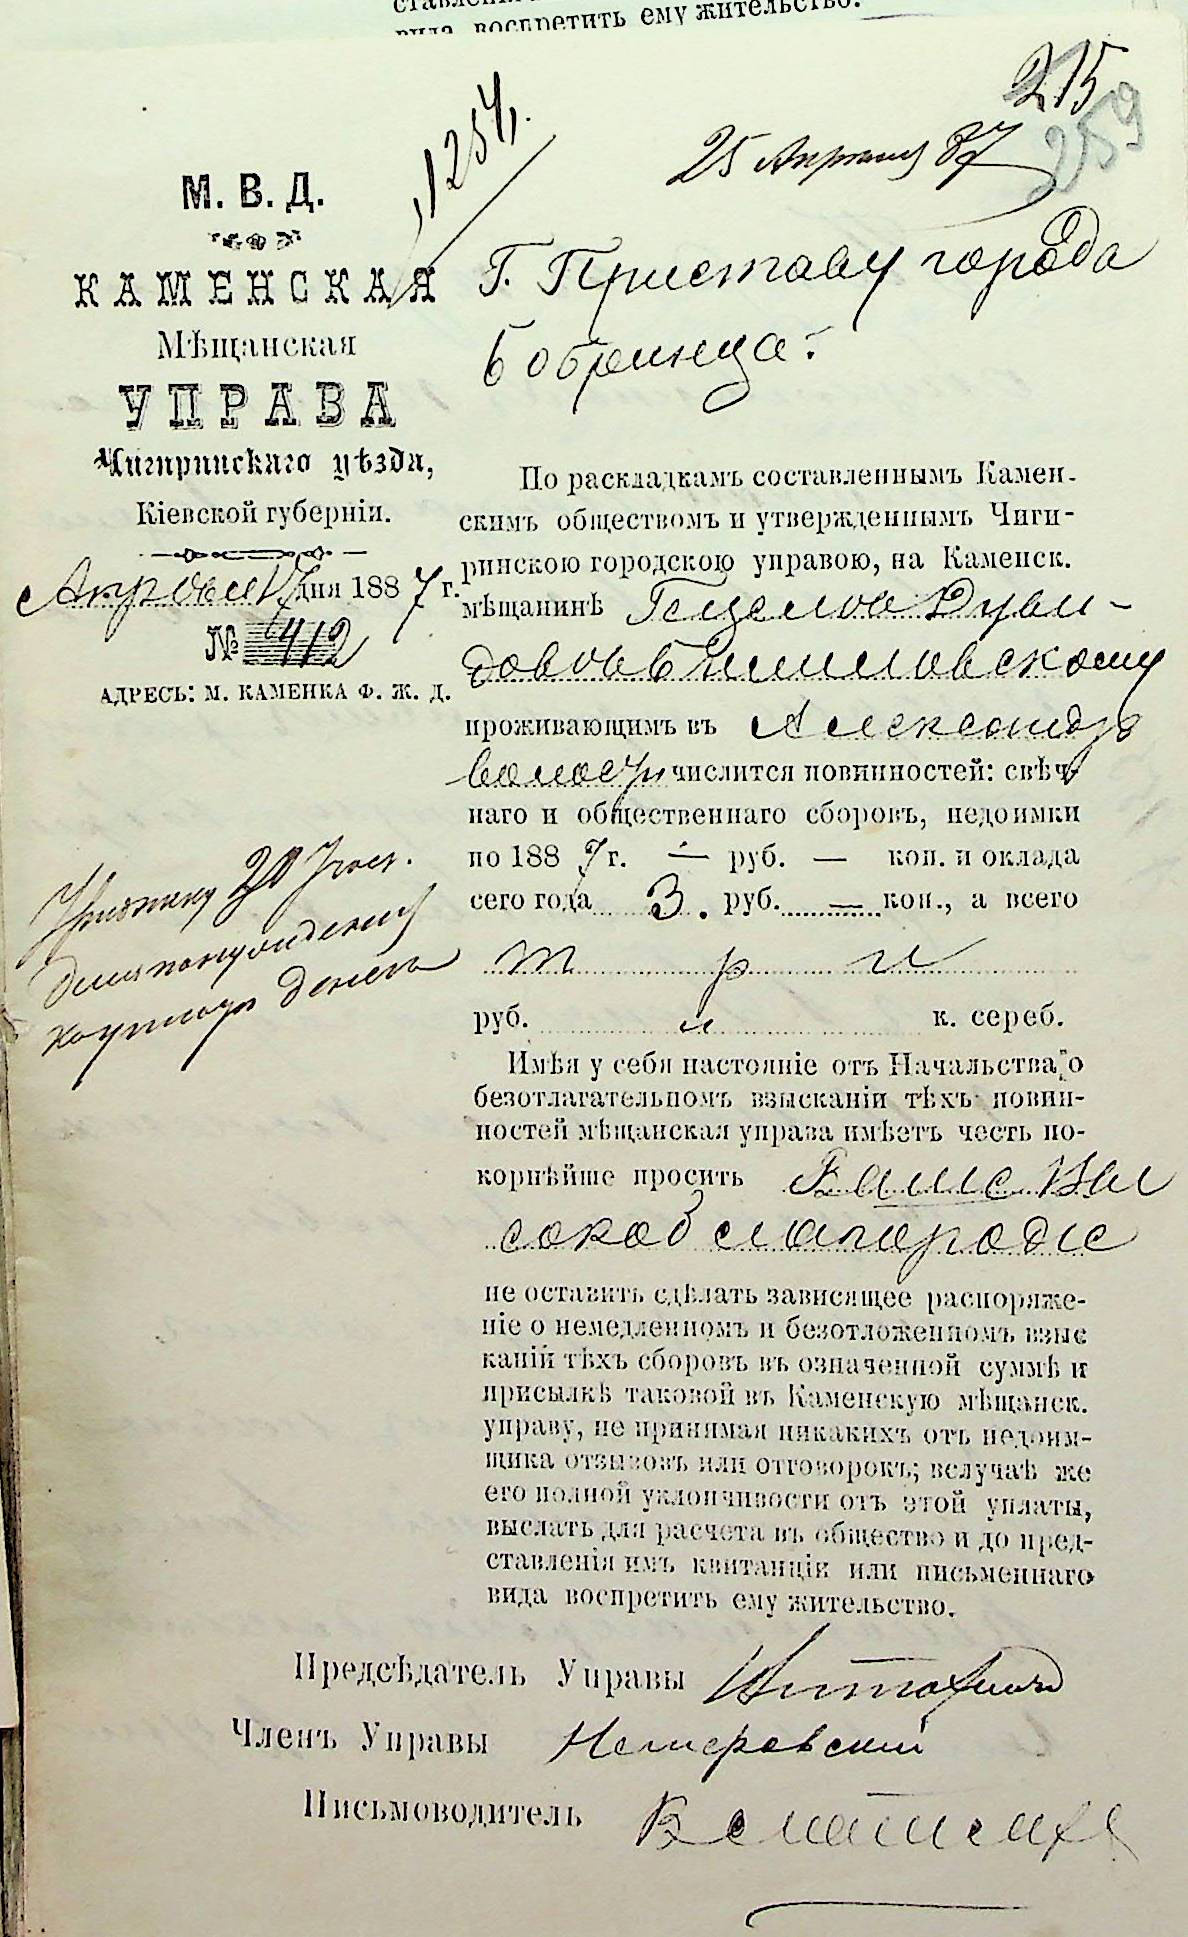 вида воспретить ему жительство.
215
259
1254
25 Апреля 87
М. В. Д.
КАМЕНСКАЯ
Мѣщанская
УПРАВА
Чигиринскаго уѣзда,
Кіевской губерніи.
Апреля 17 дня 1887 г.
№ 412
АДРЕСЪ: М. КАМЕНКА Ф. Ж. Д.
Г. Приставу города
Бобринца.
По раскладкамъ составленнымъ Камен-
скимъ обществомъ и утвержденнымъ Чиги-
ринскою городскою управою, на Каменск.
мѣщанинѣ
проживающимъ въ Александро
числится повинностей: свѣч-
наго и общественнаго сборовъ, недоимки
по 1887 г. — руб. — коп. и оклада
сего года 3. руб. — коп., а всего
три
руб. к. сереб.
Имѣя у себя настояніе отъ Начальства, о
безотлагательномъ взысканіи тѣхъ повин-
ностей мѣщанская управа имѣетъ честь по-
корнѣйше просить Ваше Вы
сокоблагородие
не оставить сдѣлать зависящее распоряже-
ніе о немедленномъ и безотложенномъ взыс
каній тѣхъ сборовъ въ означенной суммѣ и
присылкѣ таковой въ Каменскую мѣщанск.
управу, не принимая никакихъ отъ недоим-
щика отзывовъ или отговорокъ; вслучаѣ же
его полной уклончивости отъ этой уплаты,
выслать для расчета въ общество и до пред-
ставленія имъ квитанціи или письменнаго
вида воспретить ему жительство.
Предсѣдатель Управы
Членъ Управы
Письмоводитель